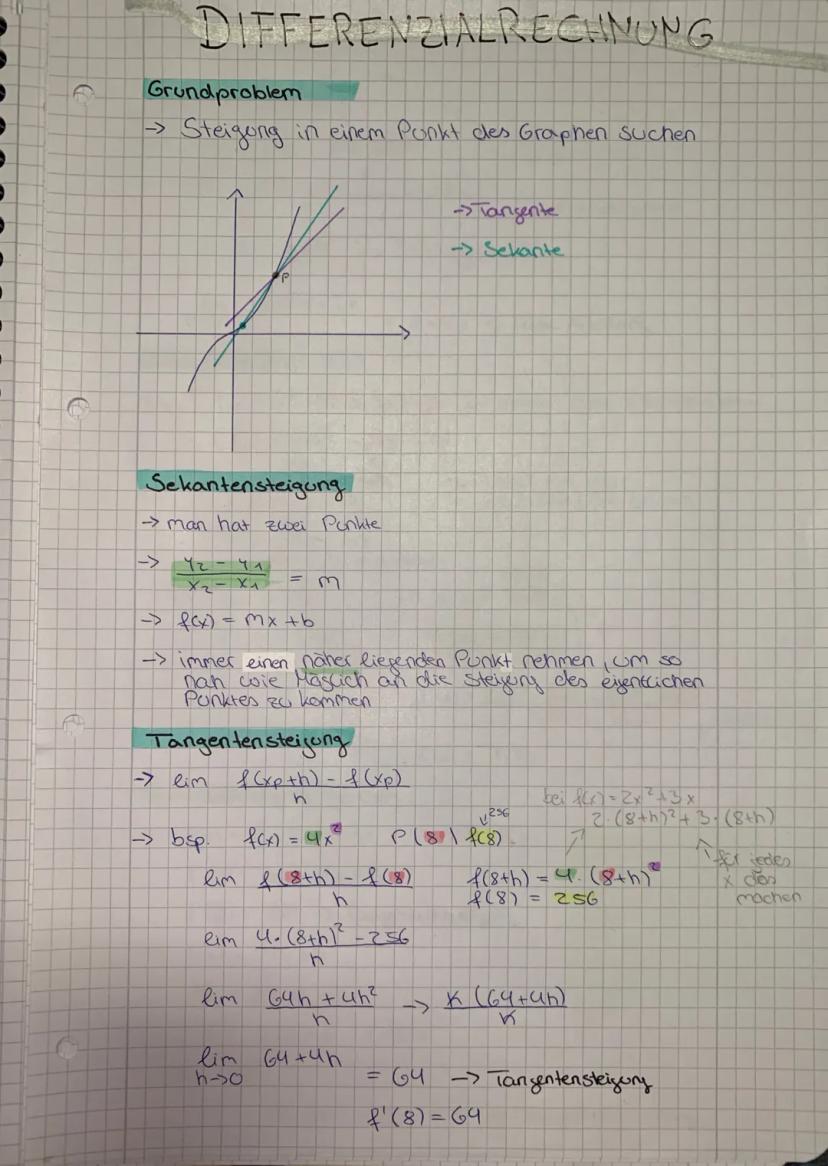 DIFFERENZIALRECHNUNG
Grundproblem
-> Steigung in einem Punkt des Graphen suchen
-> Tangente
-> Sekante
P
Sekantensteigung
-> man hat zwei Punkte
-> (y2 - y1)/(x2 - x1) = m
-> f(x) = mx + b
-> immer einen näher liegenden Punkt nehmen, um so
nah wie Möglich an die Steigung des eigentlichen
Punktes zu kommen
Tangentensteigung
-> lim (f(xp+h) - f(xp))/h
bei f(x) = 2x² + 3x
2·(8+h)² + 3·(8+h)
-> bsp. f(x) = 4x² P(8\f(8)) 256
für jedes
x das
machen
lim (f(8+h) - f(8))/h f(8+h) = 4·(8+h)²
f(8) = 256
lim (4·(8+h)² - 256)/h
lim (64h + 4h²)/h -> h(64+4h)/h
lim h->0 64+4h
= 64 -> Tangentensteigung
f'(8) = 64